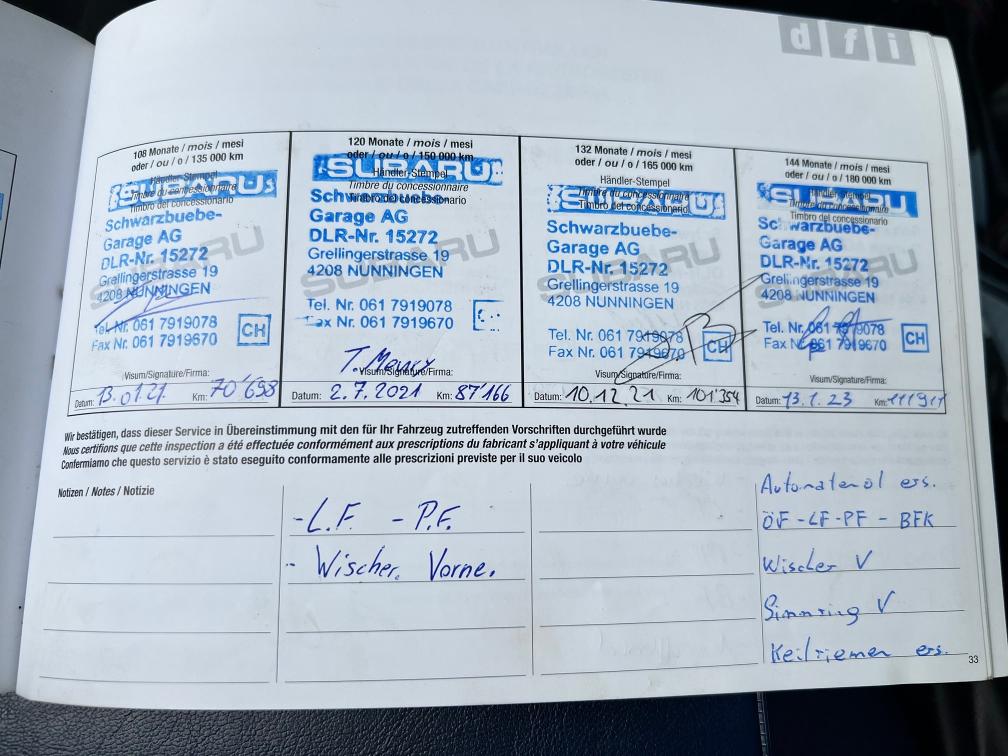 d f i
108 Monate / mois / mesi
oder / ou / o / 135 000 km
SUBARU
Händler-Stempel
Timbre du concessionnaire
Timbro del concessionario
Schwarzbuebe-
Garage AG
DLR-Nr. 15272
Grellingerstrasse 19
4208 NUNNINGEN
SUBARU
Tel. Nr. 061 7919078
Fax Nr. 061 7919670
CH
Visum/Signature/Firma:
Datum: 13.01.21 Km: 70'698
120 Monate / mois / mesi
oder / ou / o / 150 000 km
SUBARU
Händler-Stempel
Timbre du concessionnaire
Timbro del concessionario
Schwarzbuebe-
Garage AG
DLR-Nr. 15272
Grellingerstrasse 19
4208 NUNNINGEN
SUBARU
Tel. Nr. 061 7919078
Fax Nr. 061 7919670
Visum/Signature/Firma:
Datum: 2.7.2021 Km: 87'166
132 Monate / mois / mesi
oder / ou / o / 165 000 km
Händler-Stempel
SUBARU
Timbre du concessionnaire
Timbro del concessionario
Schwarzbuebe-
Garage AG
DLR-Nr. 15272
Grellingerstrasse 19
4208 NUNNINGEN
SUBARU
Tel. Nr. 061 7919078
Fax Nr. 061 7919670
CH
Visum/Signature/Firma:
Datum: 10.12.21 Km: 101'354
144 Monate / mois / mesi
oder / ou / o / 180 000 km
SUBARU
Händler-Stempel
Timbre du concessionnaire
Timbro del concessionario
Schwarzbuebe-
Garage AG
DLR-Nr. 15272
Grellingerstrasse 19
4208 NUNNINGEN
SUBARU
Tel. Nr. 061 7919078
Fax Nr. 061 7919670
CH
Visum/Signature/Firma:
Datum: 13.1.23 Km: 111'911
Wir bestätigen, dass dieser Service in Übereinstimmung mit den für Ihr Fahrzeug zutreffenden Vorschriften durchgeführt wurde
Nous certifions que cette inspection a été effectuée conformément aux prescriptions du fabricant s'appliquant à votre véhicule
Confermiamo che questo servizio è stato eseguito conformamente alle prescrizioni previste per il suo veicolo
Notizen / Notes / Notizie
- L.F. - P.F.
- Wischer. Vorne.
Automatenöl ers.
ÖF - LF - PF - BFK
Wischer V
Simmring V
Keilriemen ers.
33